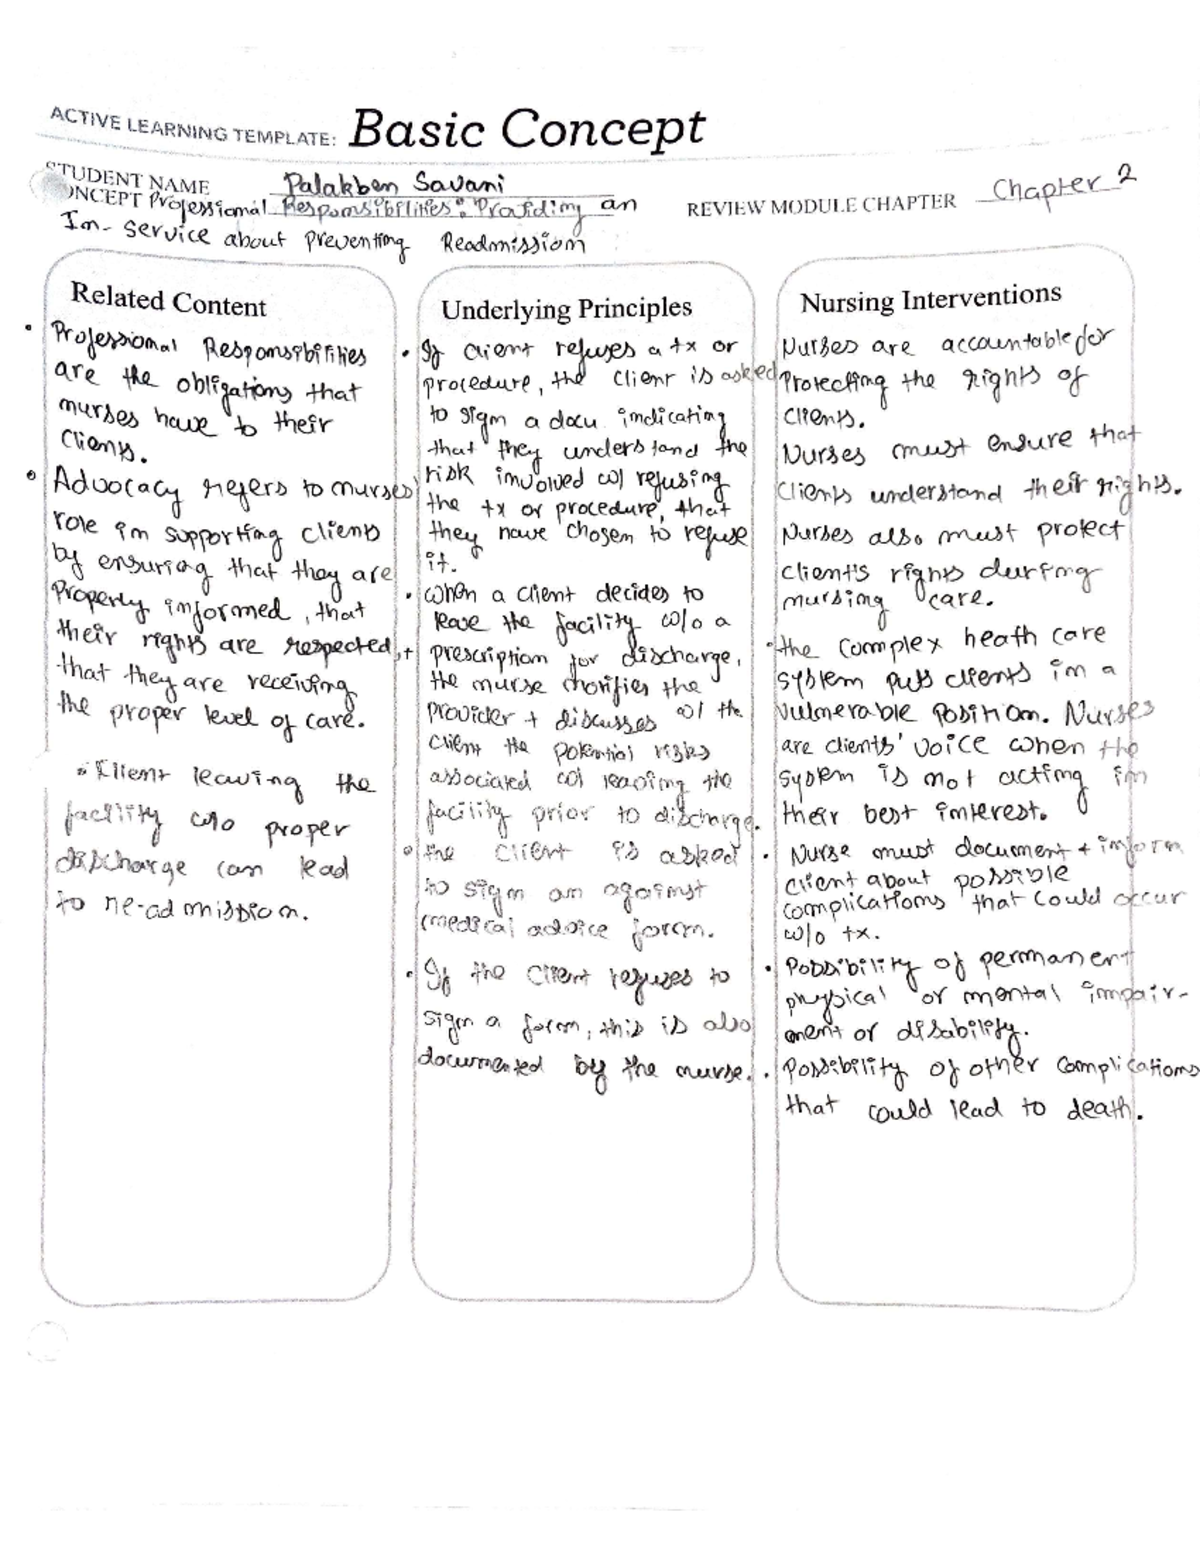 ACTIVE LEARNING TEMPLATE: Basic Concept
STUDENT NAME Palakben Savani
CONCEPT Professional Responsibilities: Providing an
REVIEW MODULE CHAPTER Chapter 2
In-service about preventing Readmission
Related Content
• Professional Responsibilities
are the obligations that
nurses have to their
clients.
• Advocacy refers to nurses'
role in supporting clients
by ensuring that they are
properly informed, that
their rights are respected, +
that they are receiving
the proper level of care.
• Client leaving the
facility w/o proper
discharge can lead
to re-admission.
Underlying Principles
• If client refuses a tx or
procedure, the client is asked
to sign a docu. indicating
that they understand the
risk involved w/ refusing
the tx or procedure, that
they have chosen to refuse
it.
• When a client decides to
leave the facility w/o a
prescription for discharge,
the nurse notifies the
provider + discusses w/ the
client the potential risks
associated w/ leaving the
facility prior to discharge.
• the client is asked
to sign an against
medical advice form.
• If the client refuses to
sign a form, this is also
documented by the nurse.
Nursing Interventions
Nurses are accountable for
Protecting the rights of
clients.
Nurses must ensure that
clients understand their rights.
Nurses also must protect
client's rights during
nursing care.
• the complex heath care
system puts clients in a
vulnerable position. Nurses
are clients' voice when the
system is not acting in
their best interest.
• Nurse must document + inform
client about possible
complications that could occur
w/o tx.
• Possibility of permanent
physical or mental impair-
ment or disability.
• Possibility of other complications
that could lead to death.